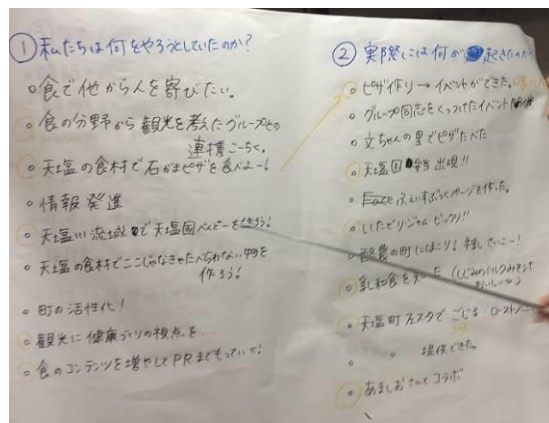 ① 私たちは何をやろうとしていたのか?
○食で他から人を寄びたい。
○食の分野から観光を考えたグループとの
連携こーちく。
○天塩の食材で石がまピザを食べよー!
○情報発進
○天塩川流域で天塩国べんとーを作ろう!
○天塩の食材でここじゃなきゃたべられない物を
作ろう!
○町の活性化!
○観光に健康づくりの視点を...
○食のコンテンツを増やしてPRまでもっていく!
② 実際には何が起きたのか?
○ピザ作り→イベントができた。
○グループ同志をくっつけたイベント開催
○文ちゃんの里でピザたべた
○天塩国弁当出現!!
○ふぇいすぶっくページを作った。
○いたどりジャムビックリ!!
○酪農の町にほこり!
○乳和食を
○天塩町フェスタでごじる・ロースト
○〃 〃 提供できた。
○あましおさんとコラボ